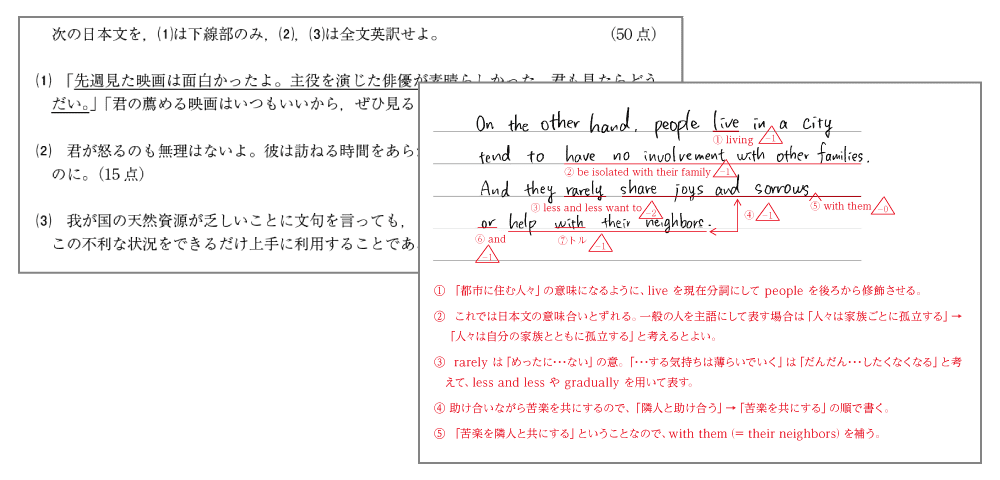 次の日本文を，(1)は下線部のみ，(2)，(3)は全文英訳せよ。 （50 点）
(1) 「先週見た映画は面白かったよ。主役を演じた俳優が素晴らしかった。君も見たらどう
だい。」「君の薦める映画はいつもいいから，ぜひ見る
(2) 君が怒るのも無理はないよ。彼は訪ねる時間をあら
のに。（15 点）
(3) 我が国の天然資源が乏しいことに文句を言っても，
この不利な状況をできるだけ上手に利用することであ
On the other hand, people live in a city
① living -1
tend to have no involvement with other families.
② be isolated with their family -1
And they rarely share joys and sorrows
③ less and less want to -2 ④ -1 ⑤ with them -0
or help with their neighbors.
⑥ and -1 ⑦トル -1
① 「都市に住む人々」の意味になるように、live を現在分詞にして people を後ろから修飾させる。
② これでは日本文の意味合いとずれる。一般の人を主語にして表す場合は「人々は家族ごとに孤立する」→
「人々は自分の家族とともに孤立する」と考えるとよい。
③ rarely は「めったに･･･ない」の意。「･･･する気持ちは薄らいでいく」は「だんだん･･･したくなくなる」と考
えて、less and less や gradually を用いて表す。
④ 助け合いながら苦楽を共にするので、「隣人と助け合う」→「苦楽を共にする」の順で書く。
⑤ 「苦楽を隣人と共にする」ということなので、with them (= their neighbors) を補う。